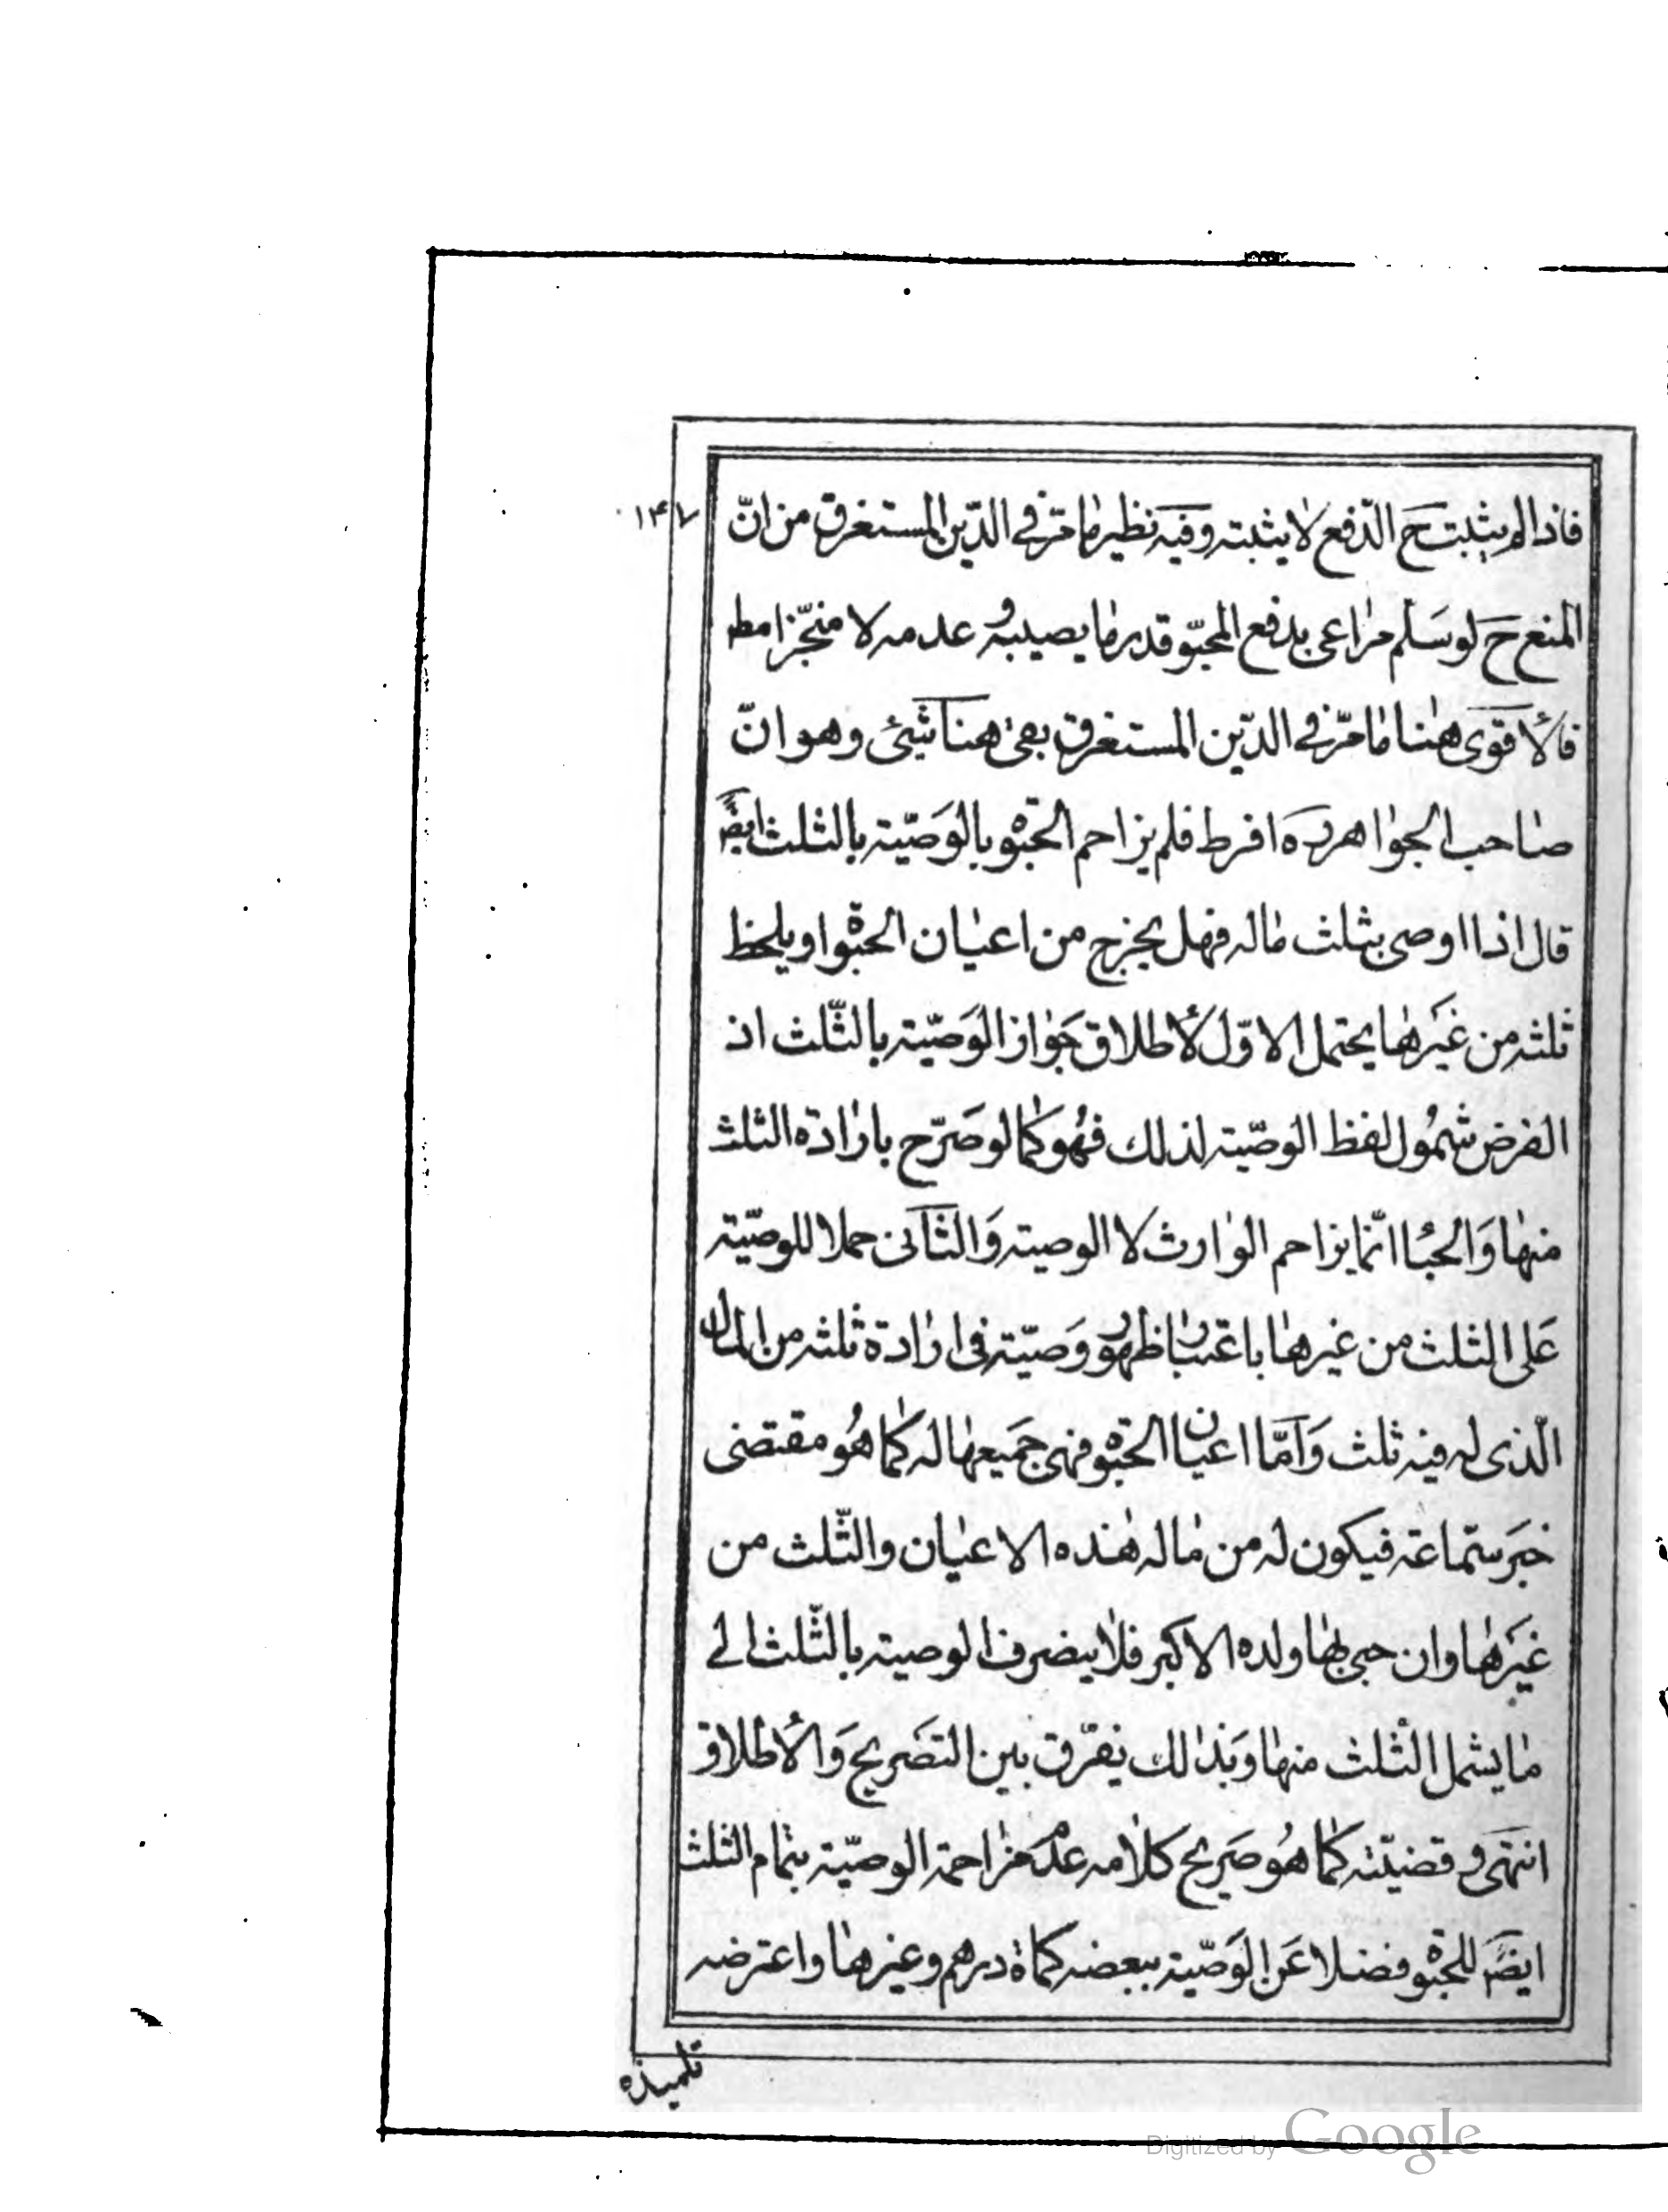 ۱۴۷
فاذا لم يثبت ح الدّفع لا يثبته وفيه نظير ما مرّ في الدّين المستغرق من انّ
المنع ح لو سلّم مراعى بدفع المحبوّ قدر ما يصيبه و عدمه لا منجّزا مط
فالأقوى هٰهنا ما مرّ في الدّين المستغرق بقى هٰهنا شيئ وهو انّ
صاحب الجواهر ره افرط فلم يزاحم الحبوة بالوصيّة بالثلث ايضً
قال اذا اوصى بثلث ماله فهل يخرج من اعيان الحبوة او يلحظ
ثلثه من غيرها يحتمل الاوّل لأطلاق جواز الوصيّة بالثّلث اذ
الفرض شمول لفظ الوصيّة لذلك فهو كما لو صرّح بارادة الثلث
منها والحباء انّما يزاحم الوارث لا الوصية والثّانى حملا للوصيّة
على الثلث من غيرها باعتبار ظهور وصيّته فى ارادة ثلثه من المال
الّذى له فيه ثلث وامّا اعيان الحبوة فهى جميعها له كما هو مقتضى
خبر سماعة فيكون له من ماله هذه الاعيان والثّلث من
غيرها وان حبى بها ولده الاكبر فلا ينصرف الوصية بالثّلث الى
ما يشمل الثّلث منها وبذالك يفرّق بين التصريح والأطلاق
انتهى و قضيّته كما هو صريح كلامه عدم مزاحمة الوصيّة بتمام الثلث
ايضً للحبوة فضلا عن الوصيّة ببعضه كماة درهم وغيرها واعترضه
تلميذه
Digitized by Google